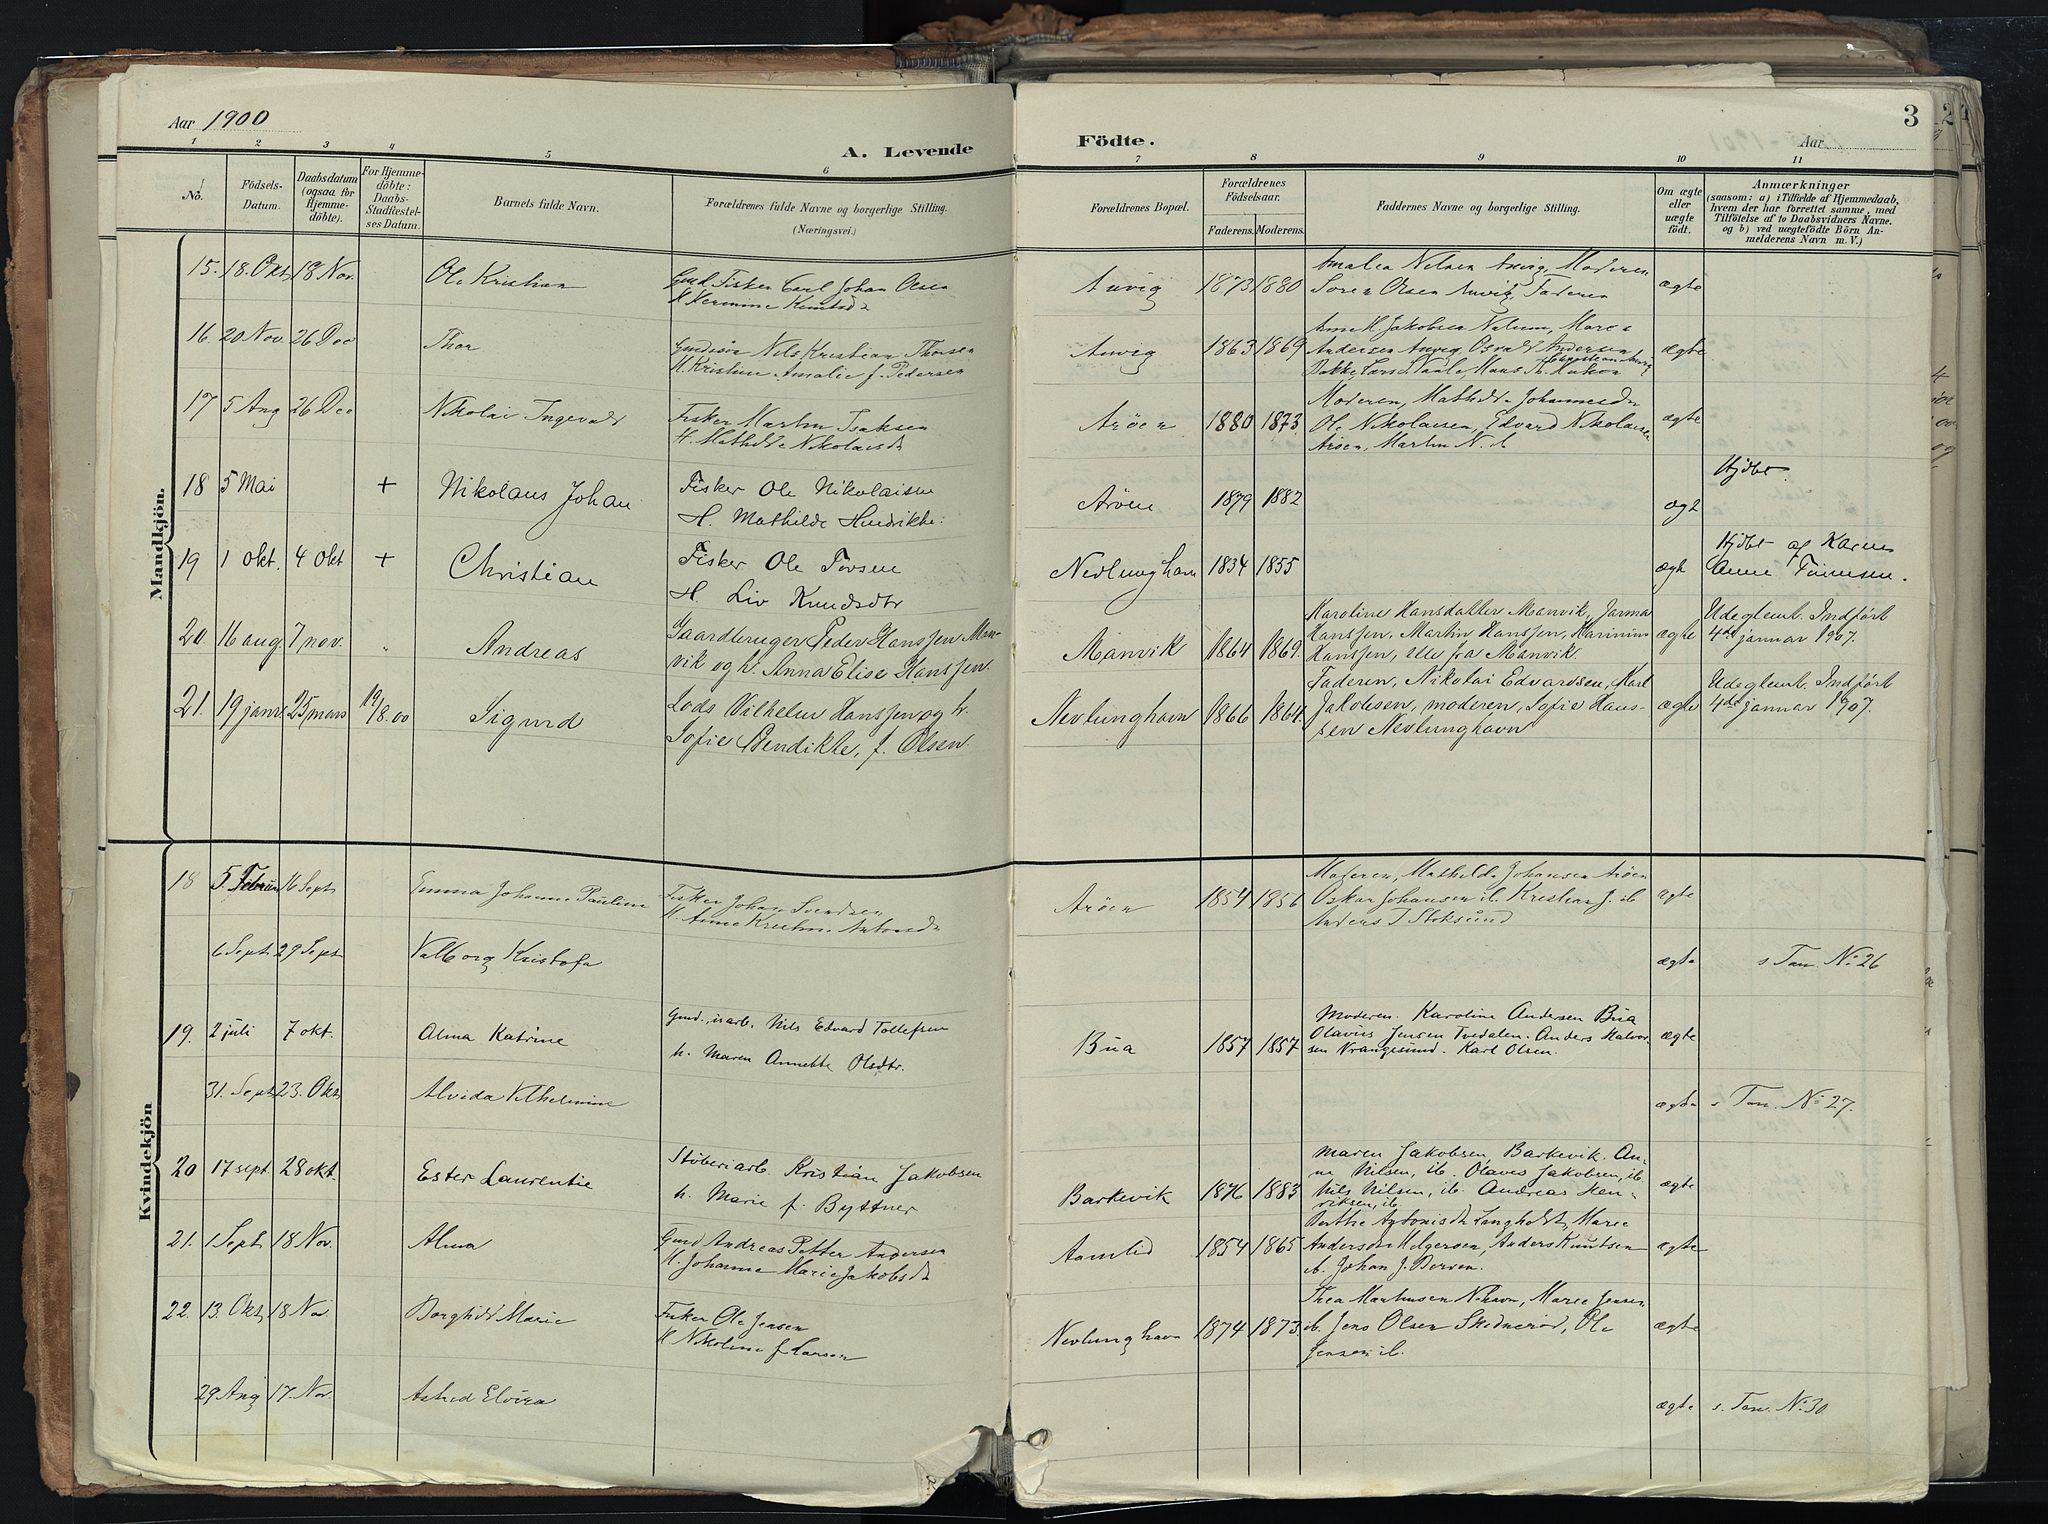 Aar 1900
A. Levende
Födte.
Aar
3
1 2 3 4 5 6 7 8 9 10 11
No.
Födsels-Datum.
Daabsdatum (ogsaa for Hjemme-döbte).
For Hjemme-döbte: Daabs-Stadfæstel-ses Datum.
Barnets fulde Navn.
Forældrenes fulde Navne og borgerlige Stilling.
(Næringsvei.)
Forældrenes Bopæl.
Forældrenes Födselsaar.
Faderens. Moderens.
Faddernes Navne og borgerlige Stilling.
Om ægte eller uægte födt.
Anmærkninger
(saasom: a) i Tilfælde af Hjemmedaab,
hvem der har forrettet samme, med
Tilföielse af to Daabsvidners Navne.
og b) ved uægtefödte Börn An-
melderens Navn m. V.)
Mandkjön.
15. 18. Okt 18 Nov. Ole Kristian Gmd Fisker Carl Johan Olsen 1873 1880 Amalia Nilsen Moderen ægte
Soren Olsen Faderen
16. 20 Nov. 26 Dec Thor Nils Kristian Thorsen 1863 1869 Anne M. Jakobsen ægte
H. Kristine Amalie f. Pedersen
Andersen Andersen
17 5 Aug 26 Dec Nikolai Ingevald Fisker Martin Isaksen Aröen 1880 1873 Moderen, Mathilde Johannesdr ægte
H. Mathilde Nikolaisdr
Ole Nikolaisen, Edvard Nikolaisen
Martin N. ib
18 5 Mai + Nikolaus Johan Fisker Ole Nikolaisen Aröen 1879 1882 ægt Hjdbt.
H. Mathilde Hendrikke:
19 1 Okt. 4 Okt + Christian Fisker Ole Torsen Nevlunghavn 1834 1855 ægte Hjdbt af Karen
H. Liv Knudsdtr
Anne
20 16 aug. 7 nov. " Andreas Gaardbruger Peder Hanssen Man-
vik og h. Anna Elise Hanssen.
Manvik 1864 1869. Karoline Hansdatter Manvik,
Hanssen, Martin Hanssen,
Hanssen, alle fra Manvik.
ægte
Udeglemt. Indført
4de januar 1907.
21. 19 janr 25 mars 19/8.00 Sigurd Lods Vilhelm Hanssen og h.
Sofie Bendikte, f. Olsen.
Nevlunghavn 1866 1864. Faderen, Nikolai Edvardsen, Karl
Jakobsen, moderen, Sofie Hans-
sen Nevlunghavn
ægte
Udeglemt. Indført
4de januar 1907.
Kvindekjön
18 5 Februar 16 Sept Emma Johanne Pauline Fisker Johan Svendsen
H. Anne
Aröen 1854 1856 Moderen, Mathilde Johansen Aröen
Oskar Johansen ib. Kristian J. ib
Anders J Stoksund
ægte
6 Sept 29 Sept Valborg Kristofa ægte s Tan. No 26
19. 2 juli 7 okt. Alma Katrine Gmd., isarb. Nils Edvard Tollefsen
h. Maren Annette Olsdtr.
Bua 1857 1857 Moderen. Karoline Andersen Bua
Olavus Jensen Tvedalen. Anders Halvor-
sen Vrangesund. Karl Olsen.
ægte
31. Sept 23. Okt Alvida Vilhelmine ægte s Tan. No 27.
20 17 sept. 28 okt. Ester Laurentie Støberiarb. Kristian Jakobsen
h. Marie f. Byttner
Barkevik 1876 1883 Maren Jakobsen, Barkevik. An-
na Nilsen, ib. Olaves Jakobsen, ib.
Nils Nilsen, ib. Andreas Hen-
riksen, ib.
ægte
21. 1 Sept 18 Nov. Alma Gmd Andreas Petter Andersen
H. Johanne Marie Jakobsdr
1854 1865 Berthe Langholt, Marie
Anders Knutsen
ib. Johan J.
ægte
22. 13. Okt 18 Nov. Borghild Marie Fisker Ole Jensen
H Nikoline f Larsen
Nevlunghavn 1874 1873 Thea Marthinsen Marie Jensen
ib. Jens Olsen Ole
Jensen ib.
ægte
29 Aug 17. Nov. Astrid Elvira ægte s. Tan. No. 30.